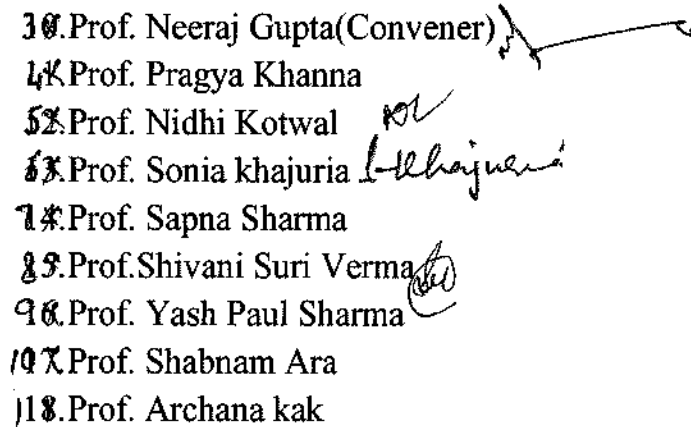 3.Prof. Neeraj Gupta(Convener)
4.Prof. Pragya Khanna
5.Prof. Nidhi Kotwal
6.Prof. Sonia khajuria Khajuria
7.Prof. Sapna Sharma
8.Prof.Shivani Suri Verma
9.Prof. Yash Paul Sharma
10.Prof. Shabnam Ara
11.Prof. Archana kak